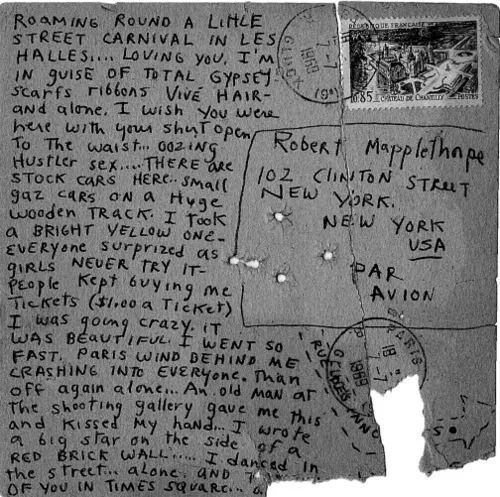 ROAMING ROUND A LITTLE
STREET CARNIVAL IN LES
HALLES.... LOVING YOU, I'M
IN GUISE OF TOTAL GYPSEY
SCARFS RIBBONS VIVE HAIR-
AND ALONE. I WISH YOU WERE
HERE WITH YOUR SHIRT OPEN
TO THE WAIST... OOZING
HUSTLER SEX.... THERE ARE
STOCK CARS HERE.. SMALL
GAZ CARS ON A HUGE
WOODEN TRACK. I TOOK
A BRIGHT YELLOW ONE-
EVERYONE SURPRIZED AS
GIRLS NEVER TRY IT-
PEOPLE KEPT BUYING ME
TICKETS ($1.00 A TICKET)
I WAS GOING CRAZY. IT
WAS BEAUTIFUL. I WENT SO
FAST. PARIS WIND BEHIND ME
CRASHING INTO EVERYONE. THAN
OFF AGAIN ALONE... AN OLD MAN AT
THE SHOOTING GALLERY GAVE ME THIS
AND KISSED MY HAND... I WROTE
A BIG STAR ON THE SIDE OF A
RED BRICK WALL..... I DANCED IN
THE STREET... ALONE. AND
OF YOU IN TIMES SQUARE...
RÉPUBLIQUE FRANÇAISE
0,85 CHÂTEAU DE CHANTILLY POSTES
1969
Robert Mapplethorpe
102 CLINTON STREET
NEW YORK.
NEW YORK
USA
PAR
AVION
PARIS
18
1969
RUE